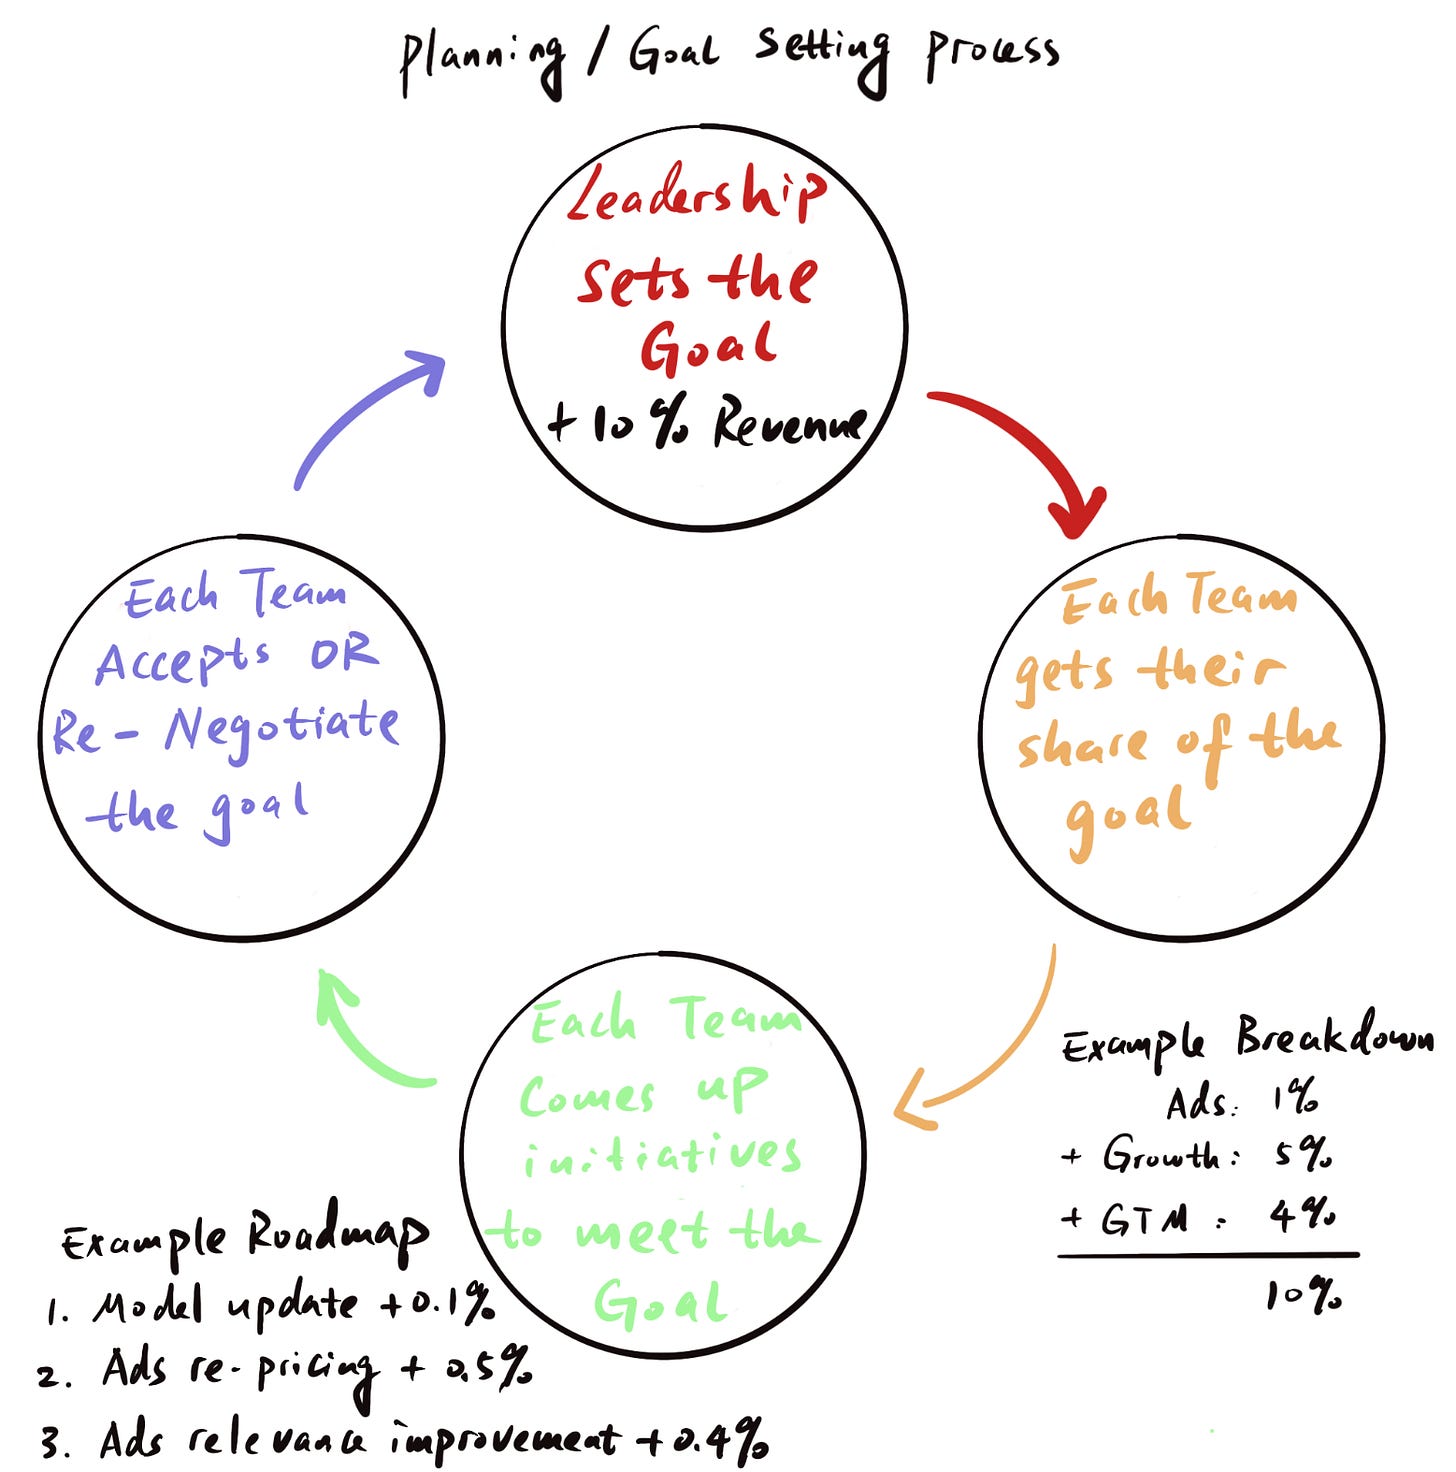 Planning / Goal Setting Process
Leadership
sets the
Goal
+ 10% Revenue
Each Team
gets their
share of the
goal
Example Breakdown
Ads: 1%
+ Growth: 5%
+ GTM: 4%
10%
Each Team
Comes up
initiatives
to meet the
Goal
Example Roadmap
1. Model update +0.1%
2. Ads re-pricing + 0.5%
3. Ads relevance improvement +0.4%
Each Team
Accepts OR
Re-Negotiate
the goal